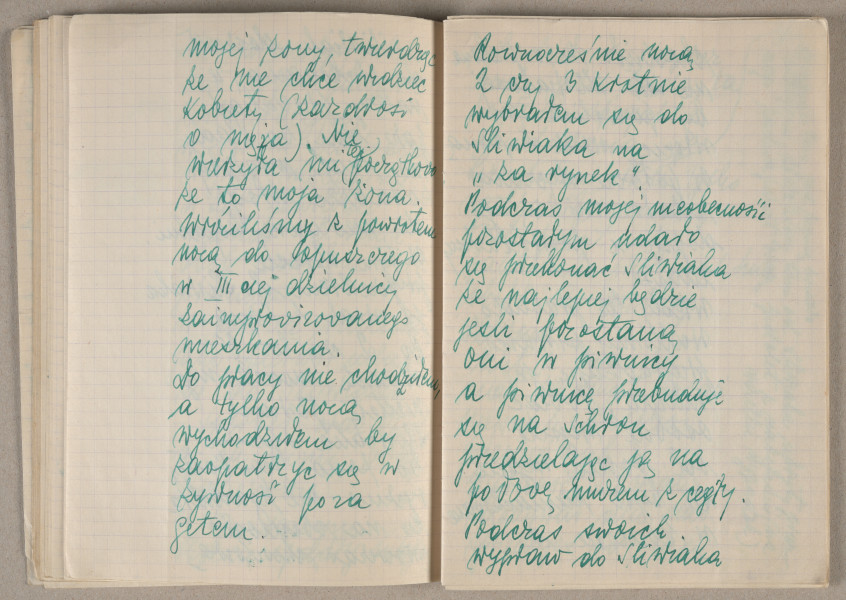 mojej żony, twierdząc
że nie chce widzieć
kobiety (zazdrość
o męża). Nie
wierzyła mi początkowo
że to moja żona.
Wróciliśmy z powrotem
nocą do opuszczego
w III ciej dzielnicy
zaimprowizowanego
mieszkania.
Do pracy nie chodziłem,
a tylko nocą
wychodziłem by
zaopatrzyć się w
żywność poza
getem.
Równocześnie nocą
2 czy 3 krotnie
wybrałem się do
Śliwiaka na
„za rynek“.
Podczas mojej nieobecności
pozostałym udało
się przekonać Śliwiaka
że najlepiej będzie
jeśli pozostaną
oni w piwnicy
a piwnicę przebuduje
się na schron
przedzielając ją na
połowę murem z cegły.
Podczas swoich
wypraw do Śliwiaka